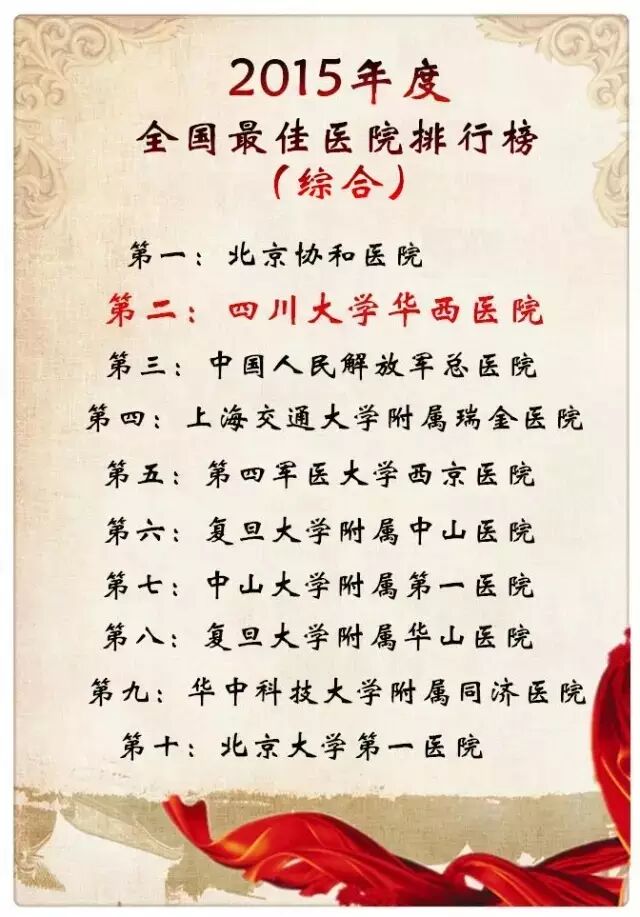 2015年度
全国最佳医院排行榜
（综合）
第一：北京协和医院
第二：四川大学华西医院
第三：中国人民解放军总医院
第四：上海交通大学附属瑞金医院
第五：第四军医大学西京医院
第六：复旦大学附属中山医院
第七：中山大学附属第一医院
第八：复旦大学附属华山医院
第九：华中科技大学附属同济医院
第十：北京大学第一医院